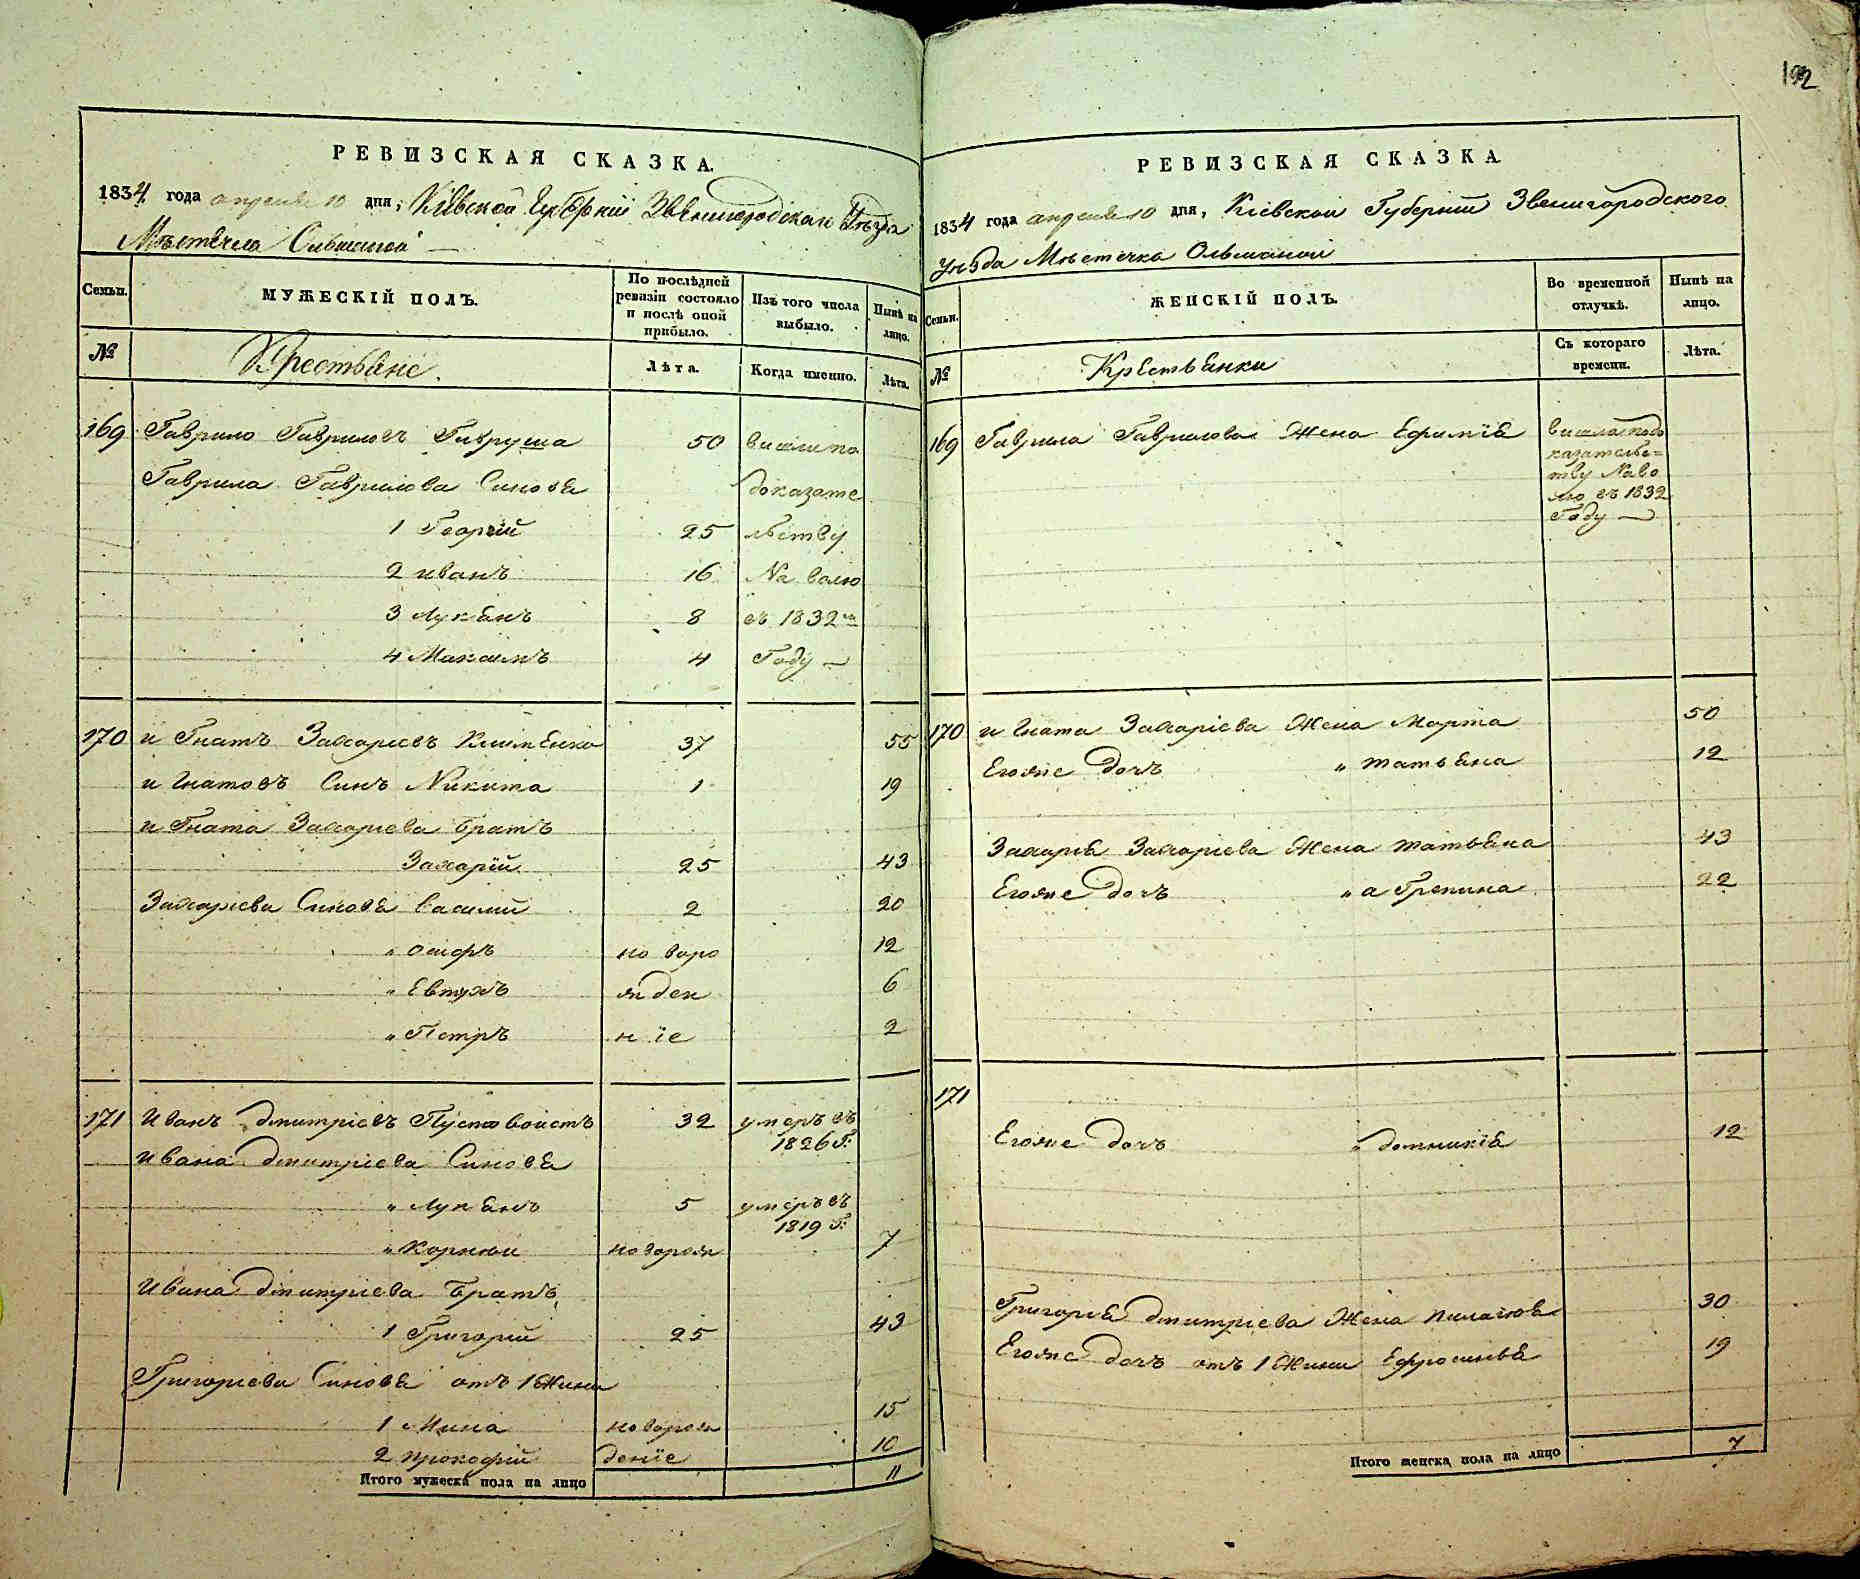 192
РЕВИЗСКАЯ СКАЗКА.
1834 года апреля 10 дня, Кіевской Губерніи Звенигородскаго Уѣзда
Мѣстечка Ольшаной
Семьи.
МУЖЕСКІЙ ПОЛЪ.
По послѣдней ревизіи состояло и послѣ оной прибыло.
Изъ того числа выбыло.
Нынѣ на лицо.
№
Крестьяне.
Лѣта.
Когда именно.
Лѣта.
169 Гаврило Гавриловъ Гавруша 50 вишли по
Гаврила Гаврилова Синовя доказате
1 Георгій 25 льству
2 иванъ 16 На волю
3 Лукянъ 8 въ 1832м
4 Максимъ 4 Году
170 и Гнатъ Захаріевъ Клименко 37 55
и Гнатовъ Синъ Никита 1 19
и Гната Захаріева братъ
Захарій 25 43
Захаріева Синовя василий 2 20
" осифъ но воро 12
" Евтухъ жден 6
" Петръ н іе 2
171 Иванъ дмитріевъ Пустовоитъ 32 умеръ въ
1826 Г:
ивана дмитріева Синовя
" Лукянъ 5 умеръ въ
1819 Г:
" Корнюиноворож 7
ивана дмитріева братъ
1 Григорій 25 43
Григоріева Синовя отъ 1 Жини
1 Мина новорож 15
2 прокофій деніе 10
Итого мужеска пола на лицо 11
РЕВИЗСКАЯ СКАЗКА
1834 года апреля 10 дня, Кіевской Губерніи Звенигородского
уѣзда Мѣстечка Ольшаной
Семьи.
ЖЕНСКІЙ ПОЛЪ.
Во временной отлучкѣ.
Нынѣ на лицо.
№
Крестьянки
Съ котораго времени.
Лѣта.
169 Гаврила Гаврилова Жена Ефимія вишла подо
казательс=
тву На во
лю въ 1832
Году
170 и Гната Захаріева Жена Марта 50
Егоже дочъ " татьяна 12
Захарія Захаріева Жена татьяна 43
Егоже дочъ " а Грепина 22
171
Егоже дочъ " домникія 12
Григорія дмитріева Жена пилагия 30
Егоже дочъ отъ 1 Жини Ефросинья 19
Итого женска пола на лицо 7